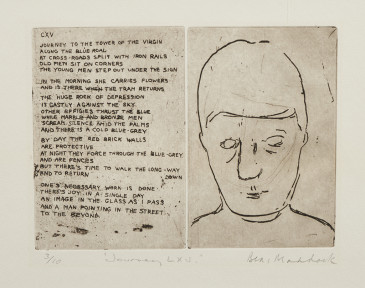 CXV
JOURNEY TO THE TOWER OF THE VIRGIN
ALONG THE BLUE ROAD
AT CROSS-ROADS SPLIT WITH IRON RAILS
OLD MEN SIT ON CORNERS
THE YOUNG MEN STEP OUT UNDER THE SIGN
IN THE MORNING SHE CARRIES FLOWERS
AND IS THERE WHEN THE TRAM RETURNS
THE HUGE ROCK OF DEPRESSION
IS GASTLY AGAINST THE SKY.
OTHER EFFIGIES THRUST THE BLUE
WHILE MARBLE AND BRONZE MEN
SCREAM SILENCE AMID THE PALMS
AND THERE IS A COLD BLUE-GREY
BY DAY THE RED BRICK WALLS
ARE PROTECTIVE
AT NIGHT THEY FORCE THROUGH THE BLUE-GREY
AND ARE FENCES
BUT THERE'S TIME TO WALK THE LONG-WAY DOWN
AND TO RETURN
ONE'S NECESSARY WORK IS DONE
THERE'S JOY IN A SINGLE DAY
AN IMAGE IN THE GLASS AS I PASS
AND A MAN POINTING IN THE STREET
TO THE BEYOND
3/10 "Journey" Bea Maddock